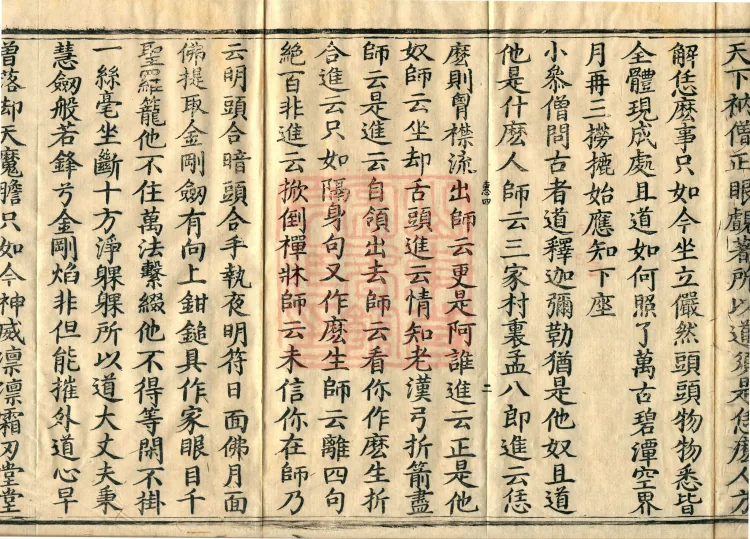 天下衲僧正眼戲著所以道須是恁麽人方
解恁麽事只如今坐立儼然頭頭物物悉皆
全體現成處且道如何照了萬古碧潭空界
月再三撈摝始應知下座
小叅僧問古者道釋迦彌勒猶是他奴且道
他是什麽人師云三家村裏孟八郎進云恁
麽則胷襟流出師云更是阿誰進云正是他
奴師云坐却舌頭進云情知老漢弓折箭盡
師云是進云自領出去師云看你作麽生折
合進云只如隔身句又作麽生師云離四句
絕百非進云掀倒禪牀師云未信你在師乃
云明頭合暗頭合手執夜明符日面佛月面
佛提取金剛劔有向上鉗鎚具作家眼目千
聖羅籠他不住萬法繫綴他不得等閑不掛
一絲毫坐斷十方淨躶躶所以道大丈夫秉
慧劔般若鋒兮金剛焰非但能摧外道心早
曾落却天魔膽只如今神威凛凛霜刃堂堂
二